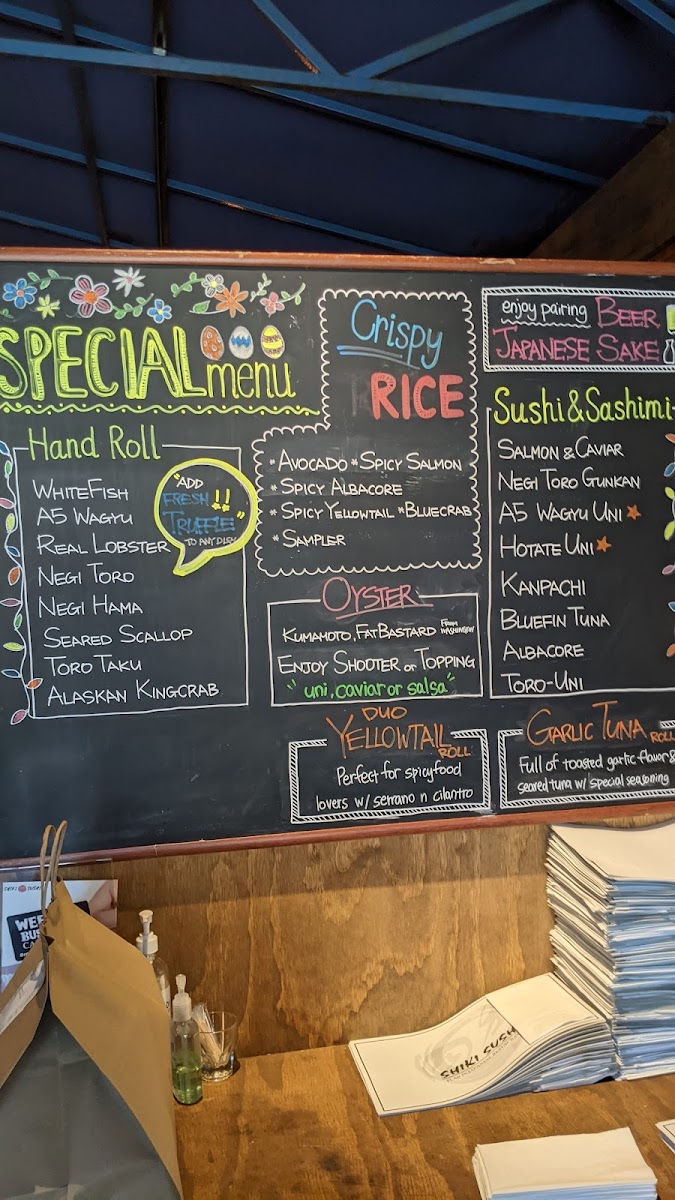 SPECIAL menu
Hand Roll
WHITEFISH
A5 WAGYU
REAL LOBSTER
NEGI TORO
NEGI HAMA
SEARED SCALLOP
TORO TAKU
ALASKAN KINGCRAB
"ADD
FRESH !!
TRUFFLE"
TO ANY DISH
Crispy
RICE
*AVOCADO *SPICY SALMON
*SPICY ALBACORE
*SPICY YELLOWTAIL *BLUECRAB
*SAMPLER
OYSTER
KUMAMOTO, FAT BASTARD FROM WASHINGTON
ENJOY SHOOTER or TOPPING
"uni, caviar or salsa"
DUO
YELLOWTAIL
ROLL
Perfect for spicyfood
lovers w/ serrano n cilantro
enjoy pairing BEER
JAPANESE SAKE
Sushi & Sashimi
SALMON & CAVIAR
NEGI TORO GUNKAN
A5 WAGYU UNI
HOTATE UNI
KANPACHI
BLUEFIN TUNA
ALBACORE
TORO-UNI
GARLIC TUNA
ROLL
Full of toasted garlic flavor &
seared tuna w/ special seasoning
SHIKI SUSHI